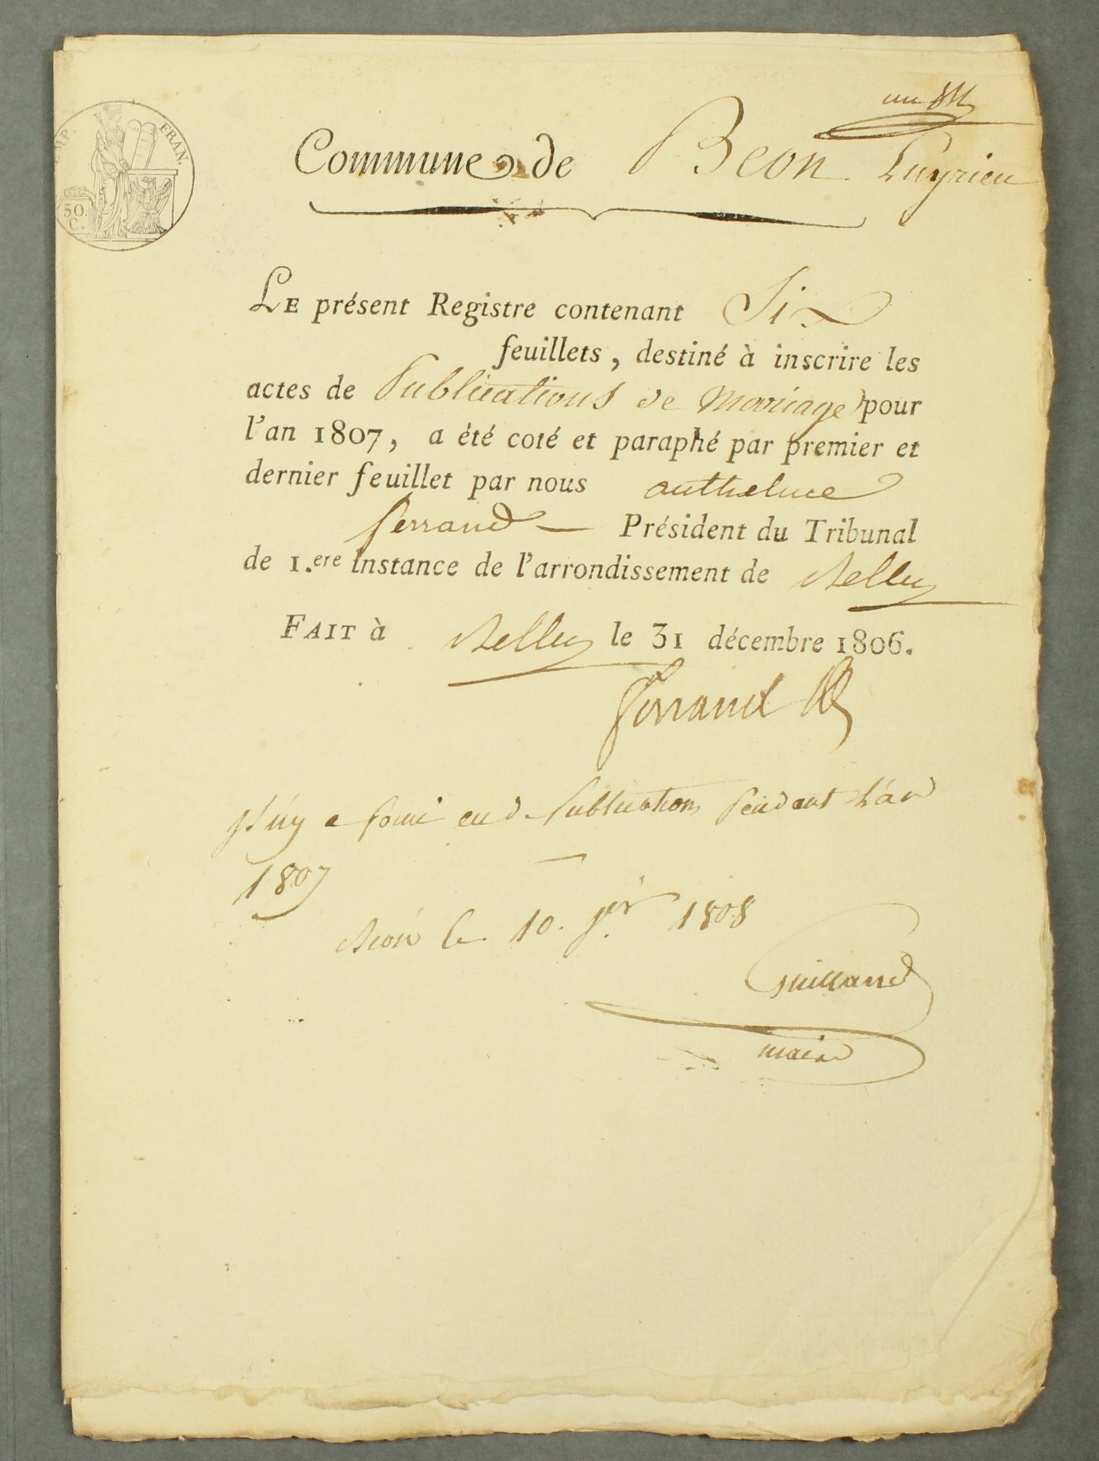 FRAN.
50.
C.
Commune de Béon. Luyrieu
LE présent Registre contenant Six
feuillets, destiné à inscrire les
actes de Publications de Mariage pour
l'an 1807, a été coté et paraphé par premier et
dernier feuillet par nous anthelme
ferrand — Président du Tribunal
de 1.ere Instance de l'arrondissement de Belley
FAIT à Belley le 31 décembre 1806.
ferrand
N'uy a point eu de Publication pendant L'an
1807
Béon le 10. jer 1808
Guilland
maire